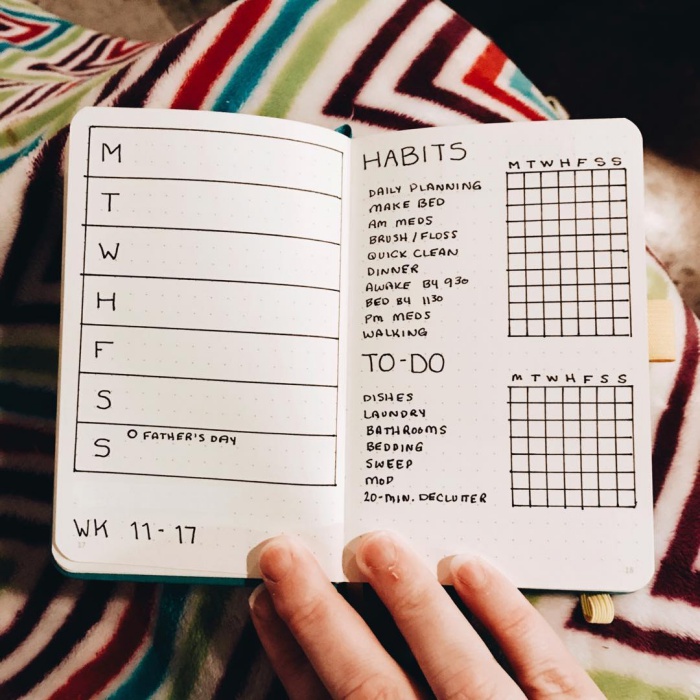 M
T
W
H
F
S
S
O FATHER'S DAY
WK 11-17
17
HABITS
M T W H F S S
DAILY PLANNING
MAKE BED
AM MEDS
BRUSH / FLOSS
QUICK CLEAN
DINNER
AWAKE BY 930
BED BY 1130
PM MEDS
WALKING
TO-DO
M T W H F S S
DISHES
LAUNDRY
BATHROOMS
BEDDING
SWEEP
MOP
20-MIN. DECLUTTER
18